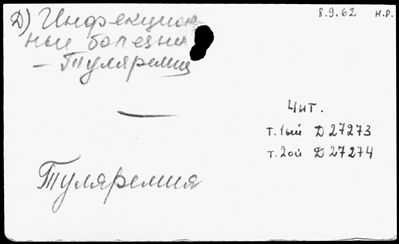 Д) Инфекцион-
ные болезни
– Туляремия
8.9.62 н.р.
Чит.
т.1ый Д 27273
т.2ой Д 27274
Туляремия